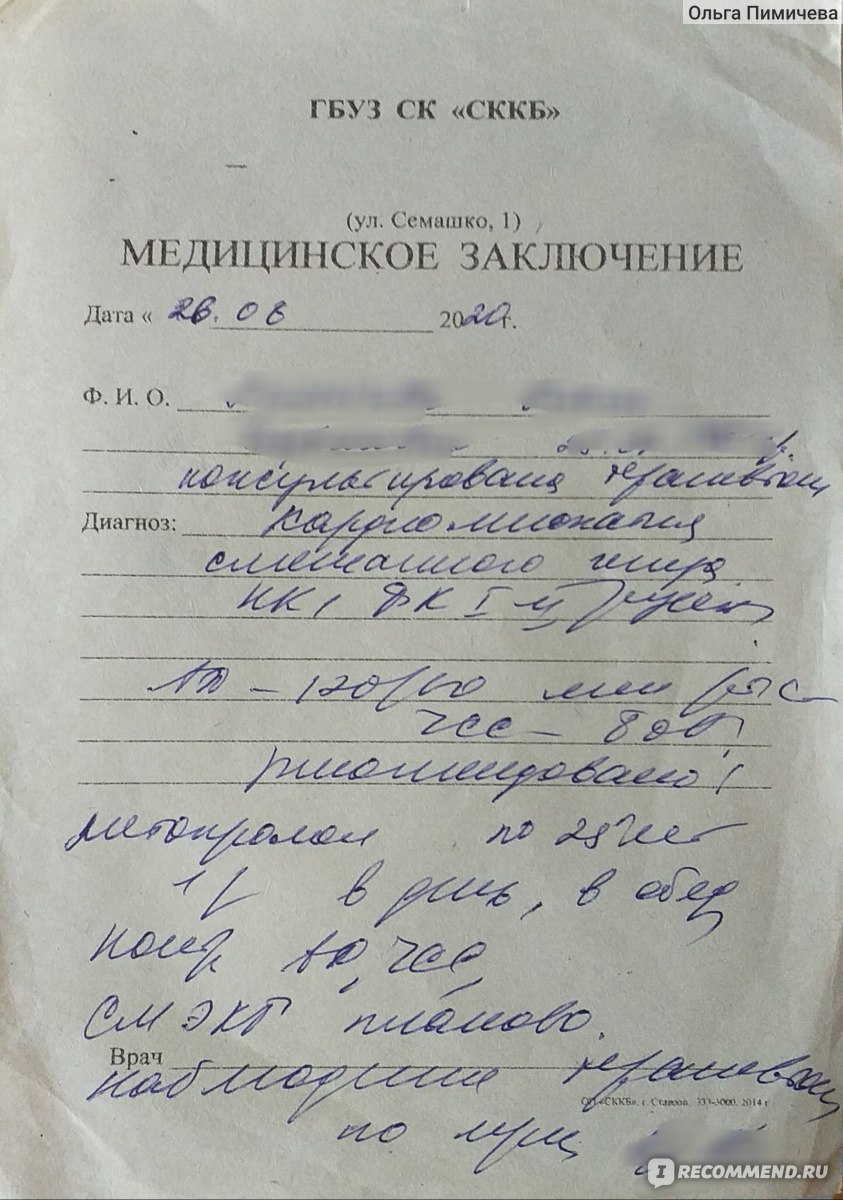 Ольга Пимичева
ГБУЗ СК «СККБ»
(ул. Семашко, 1)
МЕДИЦИНСКОЕ ЗАКЛЮЧЕНИЕ
Дата « 26. 08 2020 г.
Ф. И. О.
консультирована терапевтом
Диагноз: Кардиомиопатия
смешанного генеза
НК I ФК II
АД –
ЧСС –
рекомендовано:
метопролол по 25 мг
1 р в день, в обед
контр АД, ЧСС,
СМ ЭКГ планово.
Врач
наблюдение терапевтом
ОП «СККБ», г. Ставроп. 333-3000. 2014 г
по м/ж
IRECOMMEND.RU